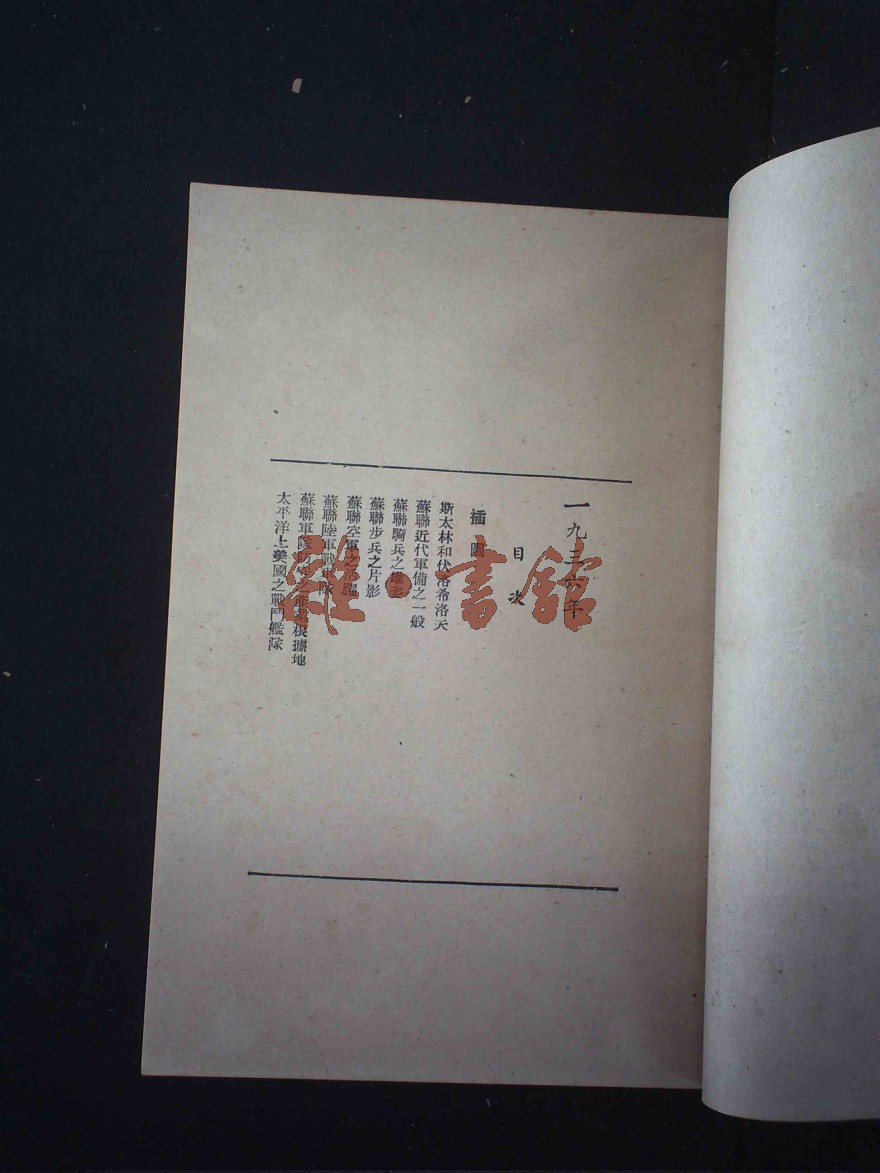 一九三六年
目次
插圖
斯太林和伏洛希洛夫
蘇聯近代軍備之一般
蘇聯騎兵之雄姿
蘇聯步兵之片影
蘇聯空軍之
蘇聯陸軍戰車隊
蘇聯軍隊根據地
太平洋上美國之戰鬥艦隊
雜·書館